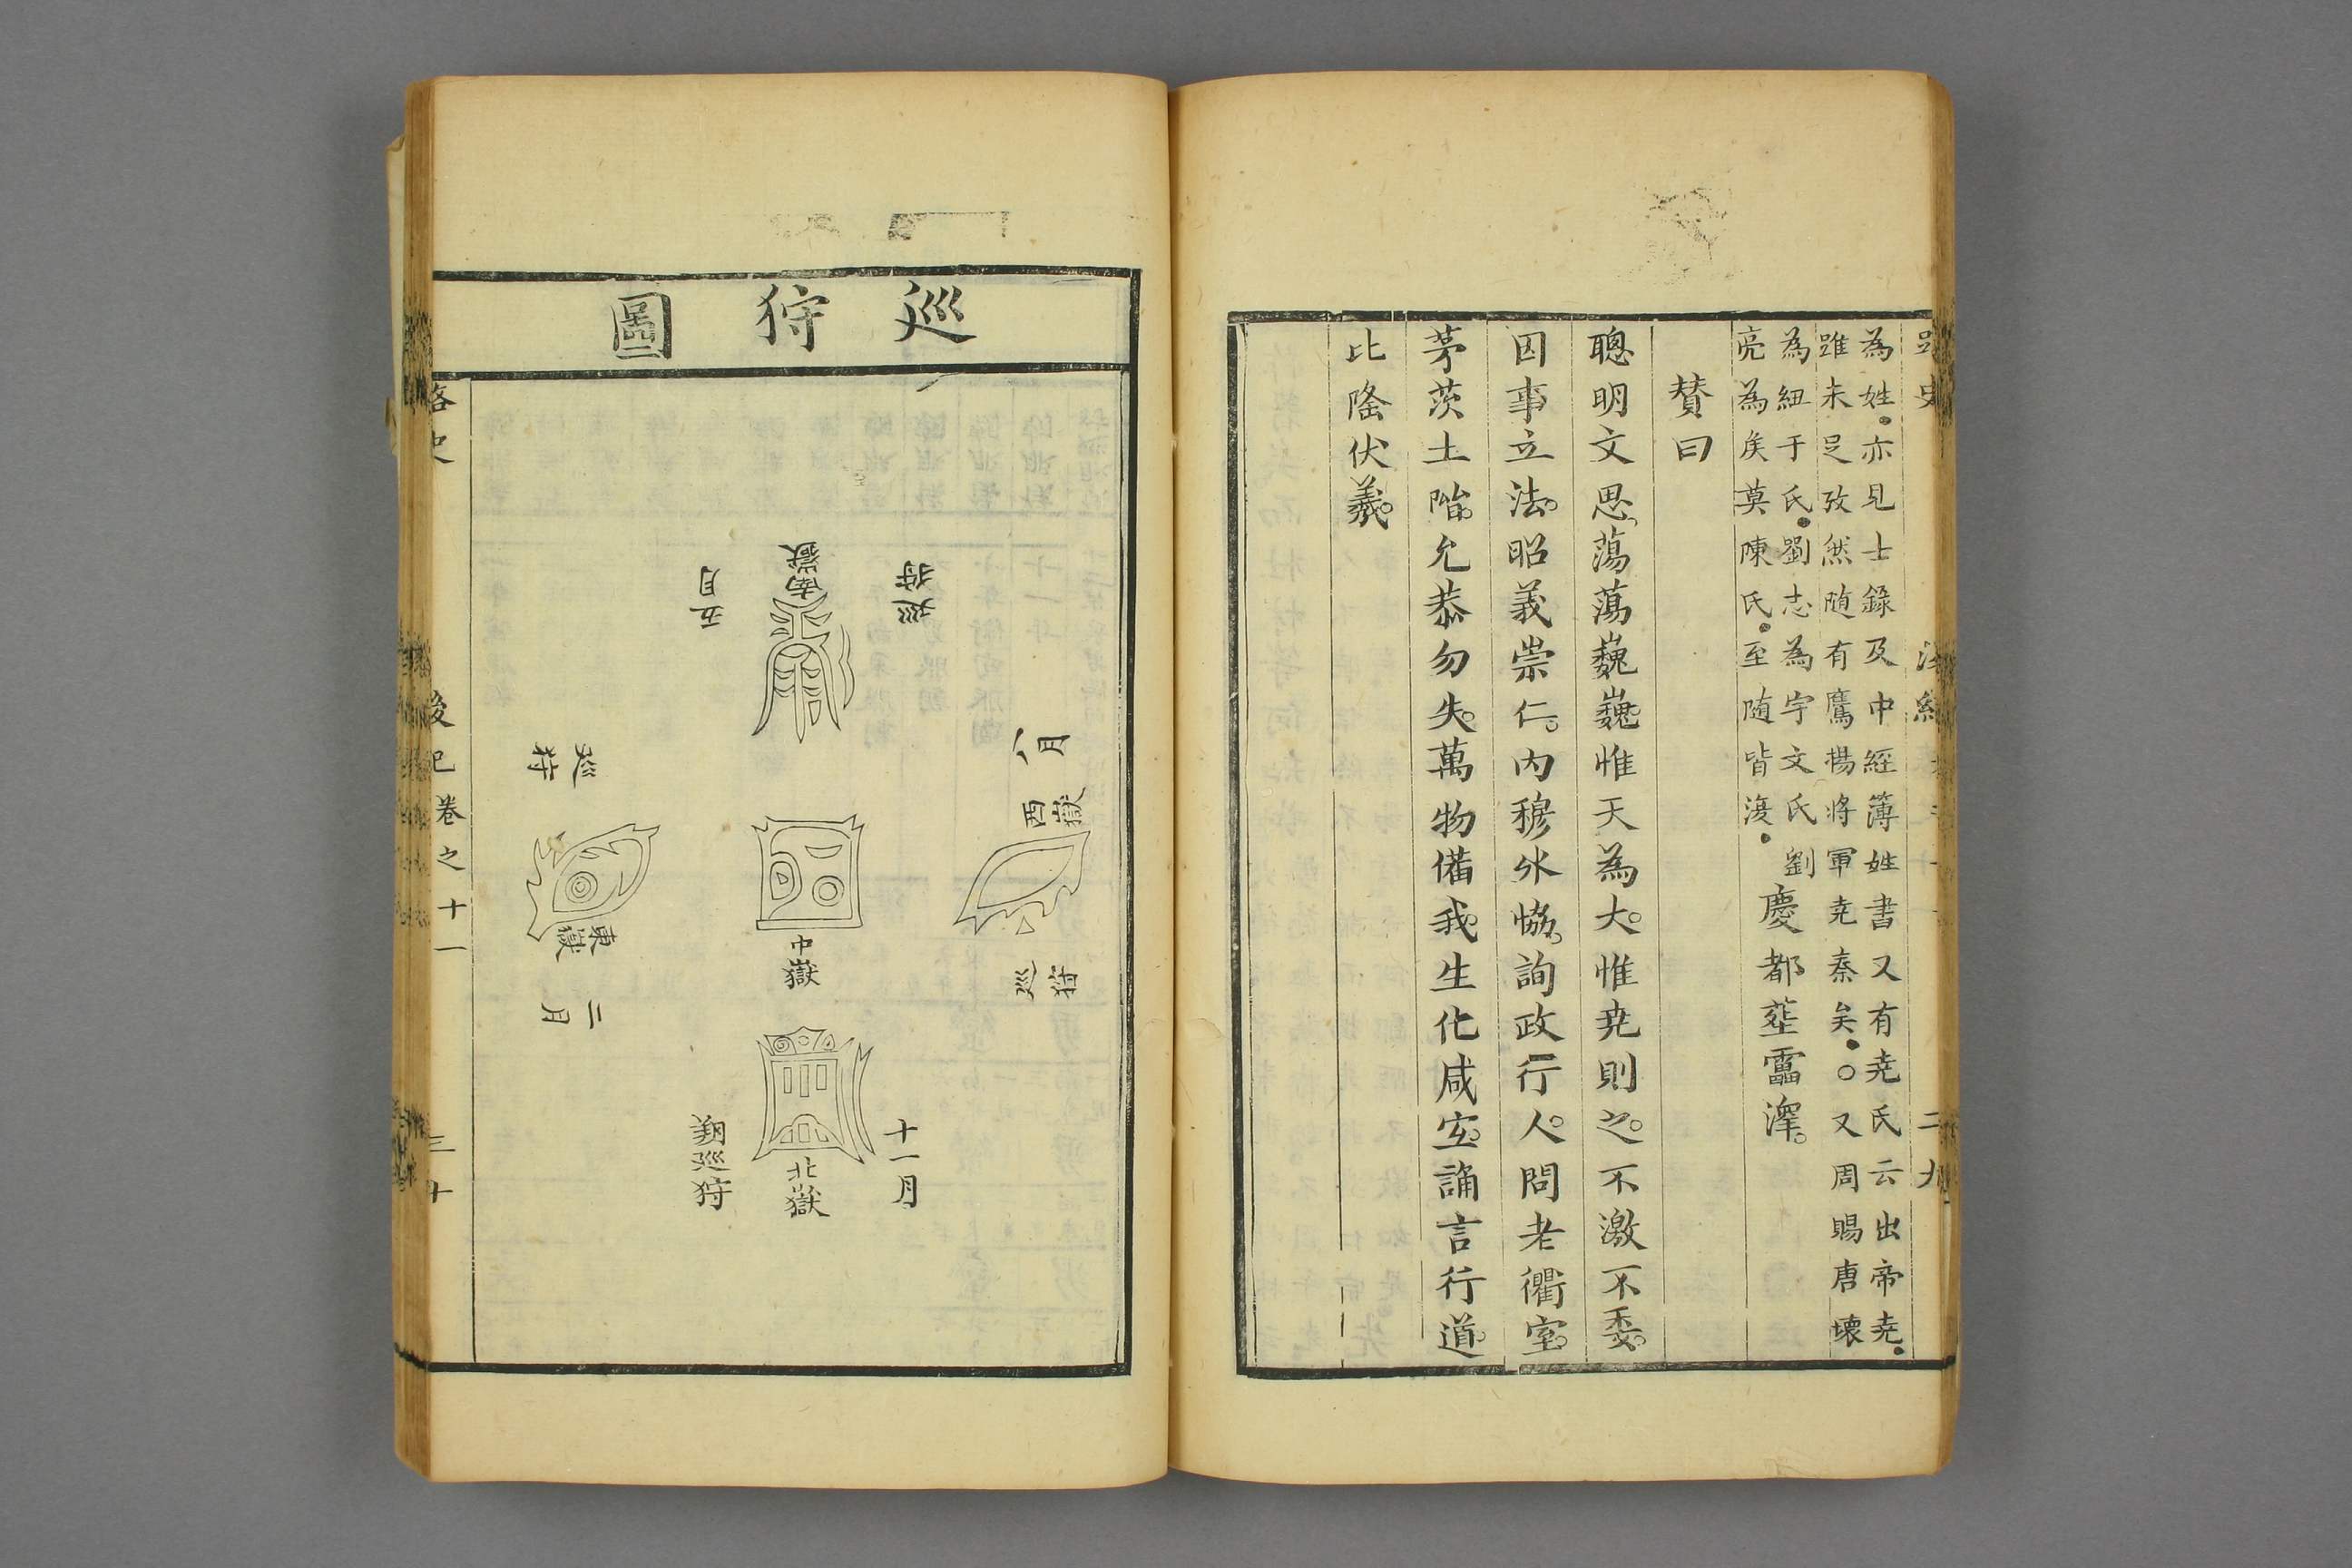 為姓亦見士錄及中經簿姓書又有堯氏云出帝堯
雖未足攷然随有鷹揚將軍堯秦矣○又周賜唐壞
為紐于氏劉志為宇文氏劉
亮為矦莫陳氏至随皆復
慶都堃靁澤
賛曰
聰明文思蕩蕩巍巍惟天為大惟堯則之不激不委
因事立法昭義崇仁内穆外恊詢政行人問老衢室
茅茨土階允恭勿失萬物備我生化咸宐誦言行道
比隆伏羲
二九
巡狩圖
八月
西嶽
巡狩
巡狩
南嶽
五月
中嶽
十一月
北嶽
朔巡狩
巡狩
東嶽
二月
路史
後紀卷之十一
三十